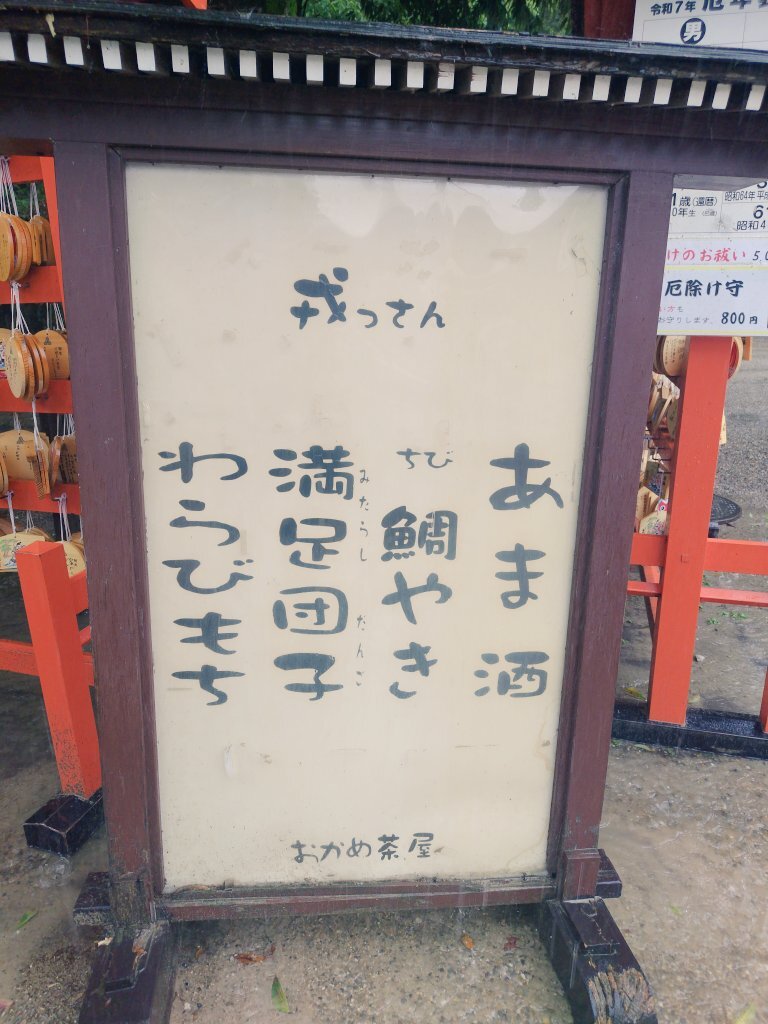 戎っさん
あま酒
ちび鯛やき
満足団子
みたらし だんご
わらびもち
おかめ茶屋
令和7年 厄年
男
1歳(還暦)
0年生
昭和64年 平成
61
昭和4
けのお祓い 5,0
厄除け守
い方も
お守りします。 800円